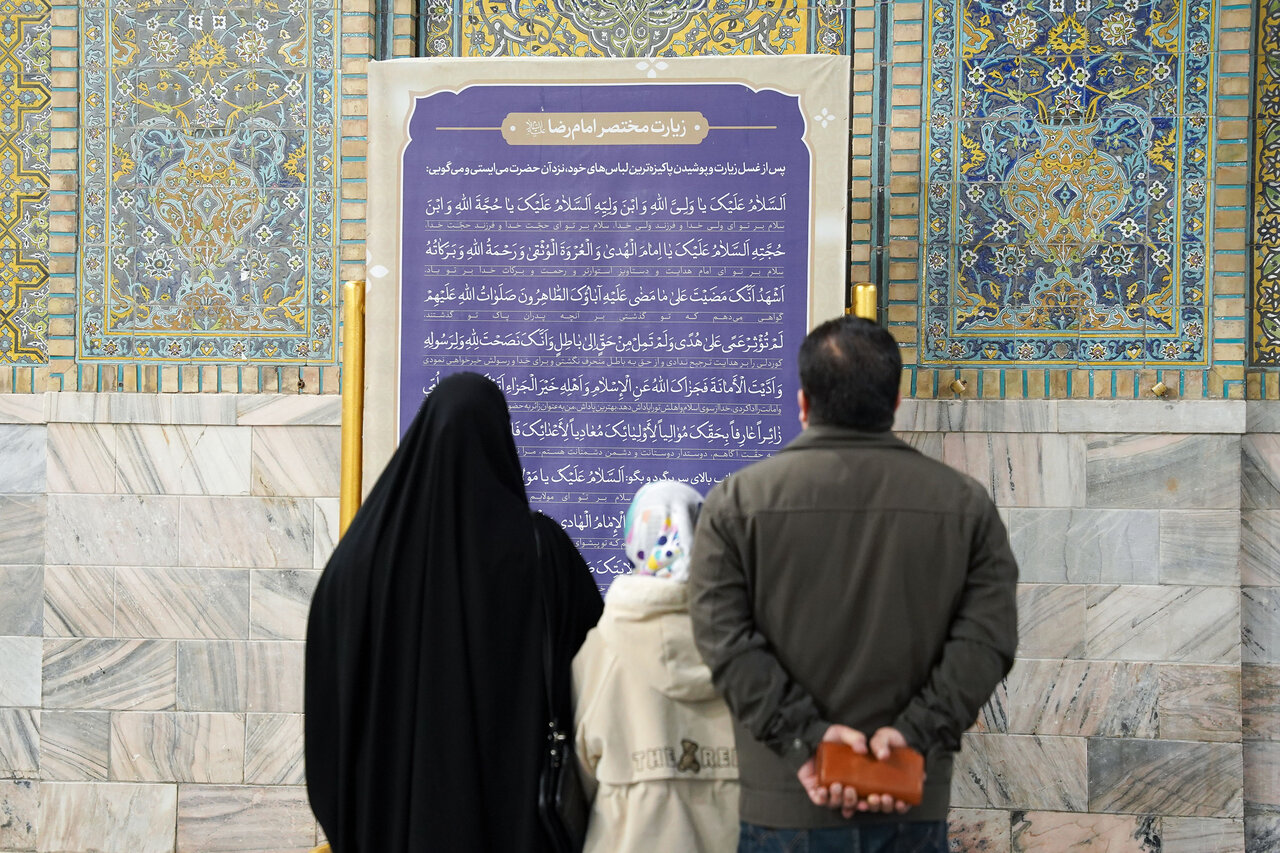 زیارت مختصر امام رضا
پس از غسل زیارت و پوشیدن پاکیزه‌ترین لباس‌های خود، نزد آن حضرت می‌ایستی و می‌گویی:
اَلسَّلامُ عَلَیْکَ یا وَلِیَّ اللهِ وَ ابْنَ وَلِیِّهِ اَلسَّلامُ عَلَیْکَ یا حُجَّةَ اللهِ وَ ابْنَ
سلام بر تو ای ولی خدا و فرزند ولی خدا، سلام بر تو ای حجّت خدا و فرزند حجّت خدا،
حُجَّتِهِ اَلسَّلامُ عَلَیْکَ یا اِمامَ الْهُدیٰ وَ الْعُرْوَةَ الْوُثْقیٰ وَ رَحْمَةُ اللهِ وَ بَرَکاتُهُ
سلام بر تو ای امام هدایت و دستاویز استوارتر و رحمت و برکات خدا بر تو باد،
اَشْهَدُ اَنَّکَ مَضَیْتَ عَلیٰ ما مَضیٰ عَلَیْهِ آباؤُکَ الطّاهِرُونَ صَلَواتُ اللهِ عَلَیْهِمْ
گواهی می‌دهم که تو گذشتی بر آنچه پدران پاک تو گذشتند،
لَمْ تُؤْثِرْ عَمیً عَلیٰ هُدیً وَ لَمْ تَمِلْ مِنْ حَقٍّ اِلیٰ باطِلٍ وَ اَنَّکَ نَصَحْتَ لِلّٰهِ وَ لِرَسُولِهِ
کوردلی را بر هدایت ترجیح ندادی و از حق به باطل منحرف نگشتی و برای خدا و رسولش خیرخواهی نمودی
وَ اَدَّیْتَ الْاَمانَةَ فَجَزاکَ اللهُ عَنِ الْاِسْلامِ وَ اَهْلِهِ خَیْرَ الْجَزاءِ
و امانت را ادا کردی، خدا از سوی اسلام و اهلش تو را پاداش دهد، بهترین پاداش، من به عنوان زائر به حضور
زائِراً عارِفاً بِحَقِّکَ مُوالِیاً لِاَوْلِیائِکَ مُعادِیاً لِاَعْدائِکَ
به حقت آگاهم، دوستدار دوستانت و دشمن دشمنانت هستم،
بالای سر برگرد و بگو: اَلسَّلامُ عَلَیْکَ یا
سلام بر تو ای مولایم
الْاِمامُ الْهادی
که تو پیشوای
THE